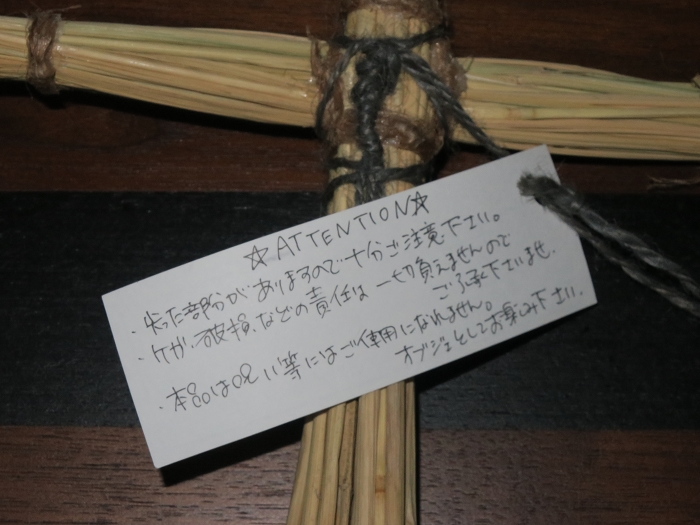 ☆ATTENTION☆
・尖った部分がありますので十分ご注意下さい。
・ケガ・破損などの責任は一切負えませんので
ご了承下さいませ.
・本品は呪い等にはご使用になれません。
オブジェとしてお楽しみ下さい.